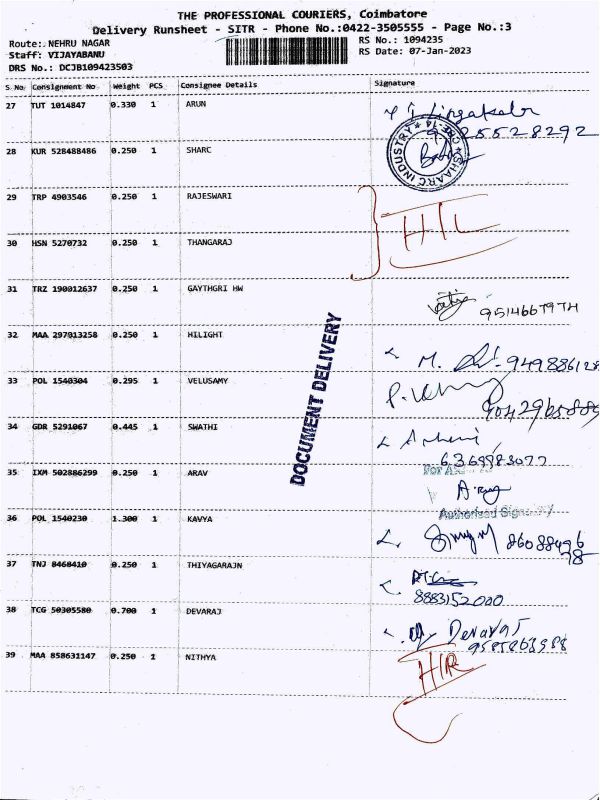 THE PROFESSIONAL COURIERS, Coimbatore
Delivery Runsheet - SITR - Phone No.:0422-3505555 - Page No.:3
Route: NEHRU NAGAR
RS No.: 1094235
Staff: VIJAYABANU
RS Date: 07-Jan-2023
DRS No.: DCJB109423503
S.No Consignment No Weight PCS Consignee Details Signature
27 TUT 1014847 0.330 1 ARUN
28 KUR 528488486 0.250 1 SHARC
SHAARC INDUSTRY CBE-14
29 TRP 4903546 0.250 1 RAJESWARI
30 HSN 5270732 0.250 1 THANGARAJ
31 TRZ 190012637 0.250 1 GAYTHGRI HW
9514667974
32 MAA 297913258 0.250 1 HILIGHT
DOCUMENT DELIVERY
33 POL 1540304 0.295 1 VELUSAMY
34 GDR 5291067 0.445 1 SWATHI
35 IXM 502886299 0.250 1 ARAV
36 POL 1540230 1.300 1 KAVYA
37 TNJ 8468410 0.250 1 THIYAGARAJN
8883152000
38 TCG 50305580 0.700 1 DEVARAJ
Devaraj
39 MAA 858631147 0.250 1 NITHYA